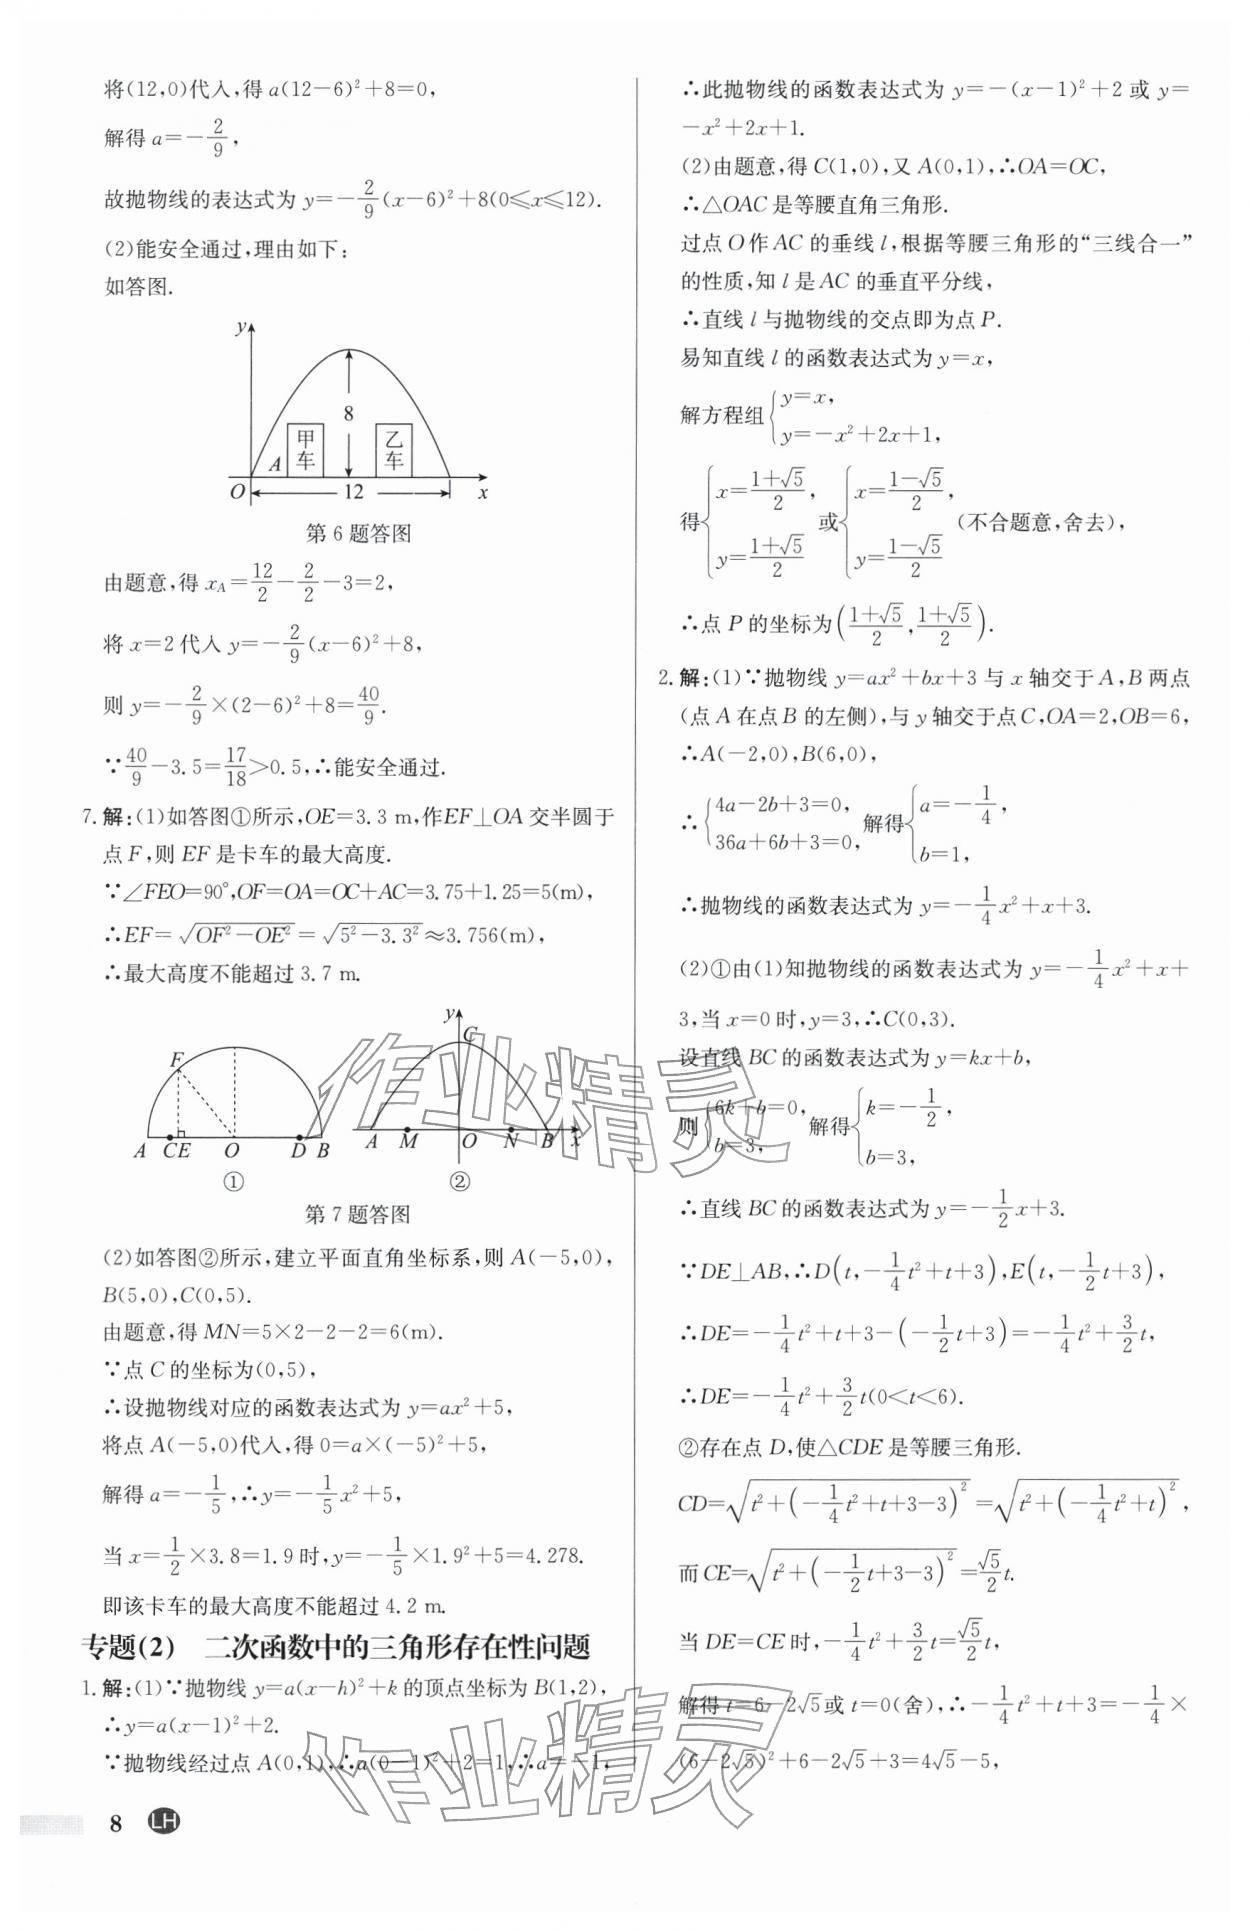 将(12,0)代入,得 a(12−6)²+8=0,
解得 a=−2/9,
故抛物线的表达式为 y=−2/9(x−6)²+8(0≤x≤12).
(2)能安全通过,理由如下:
如答图.
y
8
甲车
乙车
A
O
12
x
第6题答图
由题意,得 x_A=12/2−2/2−3=2,
将 x=2代入 y=−2/9(x−6)²+8,
则 y=−2/9×(2−6)²+8=40/9.
∵40/9−3.5=17/18>0.5,∴能安全通过.
7.解:(1)如答图①所示,OE=3.3 m,作EF⊥OA 交半圆于
点F,则 EF 是卡车的最大高度.
∵∠FEO=90°,OF=OA=OC+AC=3.75+1.25=5(m),
∴EF=√(OF²−OE²)=√(5²−3.3²)≈3.756(m),
∴最大高度不能超过 3.7 m.
F
A C E O D B
①
y
C
A M O N B x
②
第7题答图
(2)如答图②所示,建立平面直角坐标系,则 A(−5,0),
B(5,0),C(0,5).
由题意,得 MN=5×2−2−2=6(m).
∵点 C 的坐标为(0,5),
∴设抛物线对应的函数表达式为 y=ax²+5,
将点 A(−5,0)代入,得 0=a×(−5)²+5,
解得 a=−1/5,∴y=−1/5x²+5,
当 x=1/2×3.8=1.9 时,y=−1/5×1.9²+5=4.278.
即该卡车的最大高度不能超过 4.2 m.
专题(2) 二次函数中的三角形存在性问题
1.解:(1)∵抛物线 y=a(x−h)²+k 的顶点坐标为 B(1,2),
∴y=a(x−1)²+2.
∵抛物线经过点 A(0,1),∴a(0−1)²+2=1,∴a=−1,
8 LH
∴此抛物线的函数表达式为 y=−(x−1)²+2 或 y=
−x²+2x+1.
(2)由题意,得 C(1,0),又 A(0,1),∴OA=OC,
∴△OAC 是等腰直角三角形.
过点 O 作 AC 的垂线 l,根据等腰三角形的“三线合一”
的性质,知 l 是 AC 的垂直平分线,
∴直线 l 与抛物线的交点即为点 P.
易知直线 l 的函数表达式为 y=x,
解方程组{y=x, y=−x²+2x+1,
得{x=(1+√5)/2, y=(1+√5)/2 或{x=(1−√5)/2, y=(1−√5)/2 (不合题意,舍去),
∴点 P 的坐标为((1+√5)/2,(1+√5)/2).
2.解:(1)∵抛物线 y=ax²+bx+3 与 x 轴交于 A,B 两点
(点 A 在点 B 的左侧),与 y 轴交于点 C,OA=2,OB=6,
∴A(−2,0),B(6,0),
∴{4a−2b+3=0, 36a+6b+3=0, 解得{a=−1/4, b=1,
∴抛物线的函数表达式为 y=−1/4x²+x+3.
(2)①由(1)知抛物线的函数表达式为 y=−1/4x²+x+
3,当 x=0 时,y=3,∴C(0,3).
设直线 BC 的函数表达式为 y=kx+b,
则{6k+b=0, b=3, 解得{k=−1/2, b=3,
∴直线 BC 的函数表达式为 y=−1/2x+3.
∵DE⊥AB,∴D(t,−1/4t²+t+3),E(t,−1/2t+3),
∴DE=−1/4t²+t+3−(−1/2t+3)=−1/4t²+3/2t,
∴DE=−1/4t²+3/2t(0<t<6).
②存在点 D,使△CDE 是等腰三角形.
CD=√(t²+(−1/4t²+t+3−3)²)=√(t²+(−1/4t²+t)²),
而 CE=√(t²+(−1/2t+3−3)²)=√5/2t.
当 DE=CE 时,−1/4t²+3/2t=√5/2t,
解得 t=6−2√5或 t=0(舍),∴−1/4t²+t+3=−1/4×
(6−2√5)²+6−2√5+3=4√5−5,
作业精灵
作业精灵